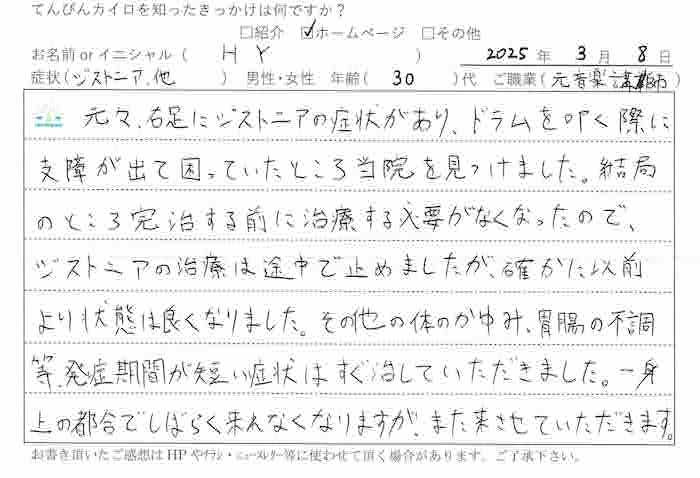 てんびんカイロを知ったきっかけは何ですか?
□紹介 ☑ホームページ □その他
お名前 or イニシャル ( H Y ) 2025 年 3 月 8 日
症状(ジストニア、他 ) 男性・女性 年齢( 30 )代 ご職業(元音楽講師)
元々、右足にジストニアの症状があり、ドラムを叩く際に
支障が出て困っていたところ当院を見つけました。結局
のところ完治する前に治療する必要がなくなったので、
ジストニアの治療は途中で止めましたが、確かに以前
より状態は良くなりました。その他の体のかゆみ、胃腸の不調
等、発症期間が短い症状はすぐ治していただきました。一身
上の都合でしばらく来れなくなりますが、また来させていただきます。
お書き頂いたご感想は HP やチラシ・ニュースレター等に使わせて頂く場合があります。ご了承下さい。